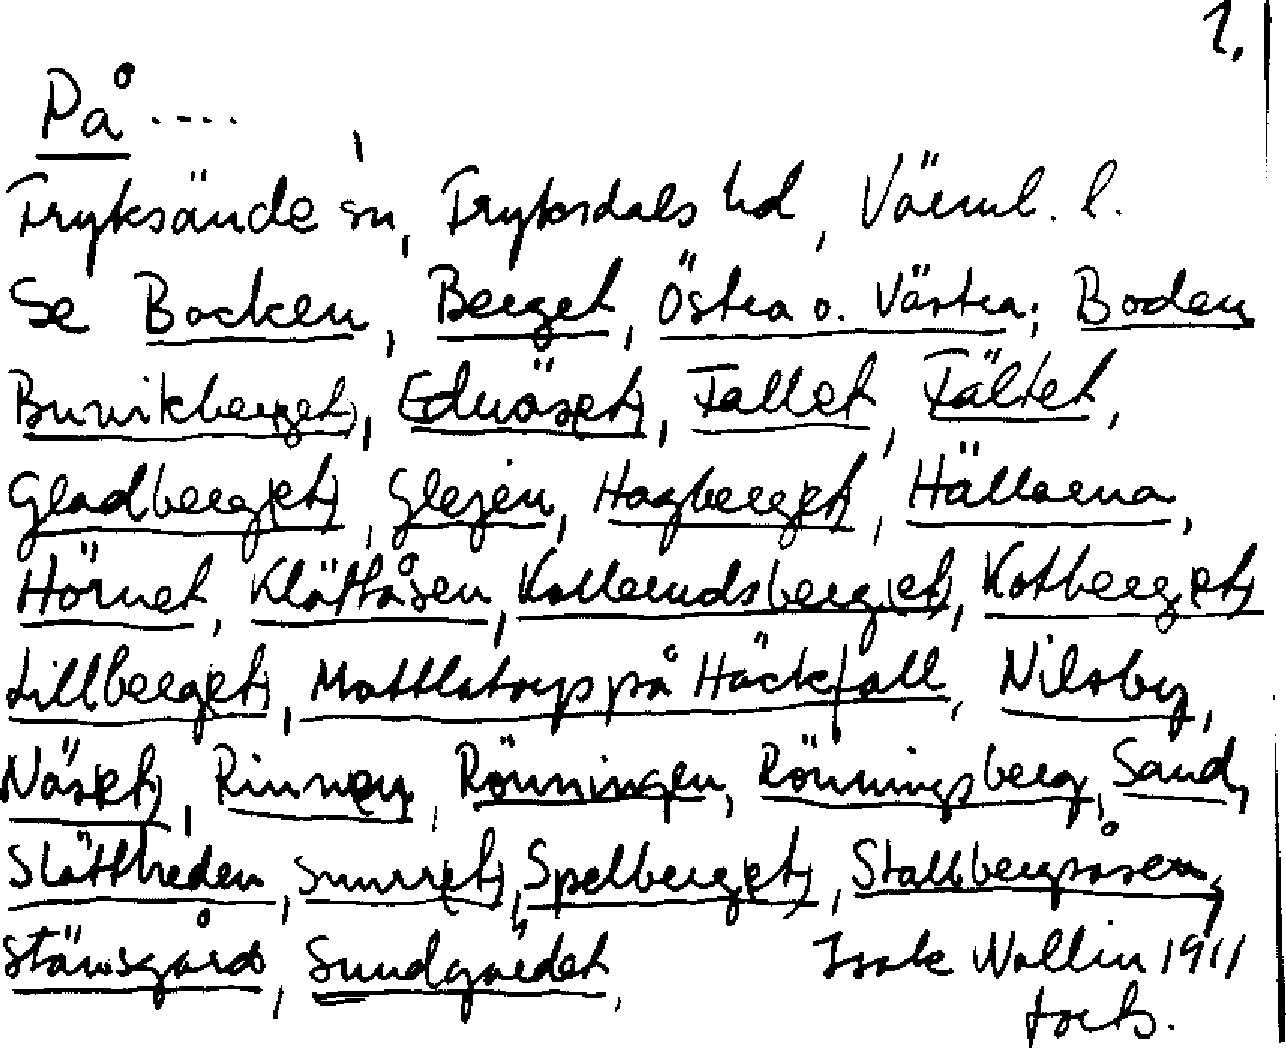 2.
På ....
Fryksände sn, Fryksdals hd, Värml. l.
Se Backen, Berget, Östra o. Västra; Boden
Burvikberg(et), Edwäs(et), Fallet, Fältet,
Gladberg(et), Glesjen, Hagberg(et), Hällarna,
Hörnet, Klättåsen, Kollerudsberg(et), Kotberg(et)
Lillberg(et), Mattlatorp på Häckfall, Nilsby,
Näs(et), Rinn(en), Rönningen, Rönningsberg, Sand,
Slättbreden, Snurr(et), Spelberg(et), Stallbergsåsen,
Stänsgård, Sundgärdet, Isak Wallin 1911